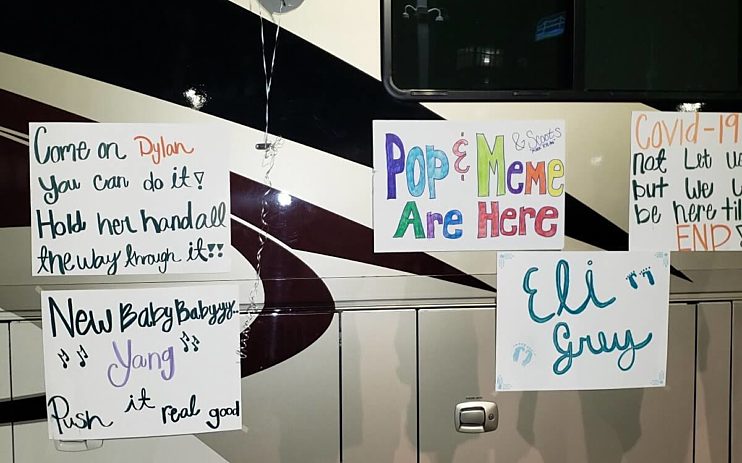 Come on Dylan
You can do it!
Hold her hand all
the way through it!!
New Baby Babyyy..
Yang
Push it real good
& Scoots
Pop & Meme
Are Here
Eli
Grey
Covid-19
not Let us
but we
be here til
END!